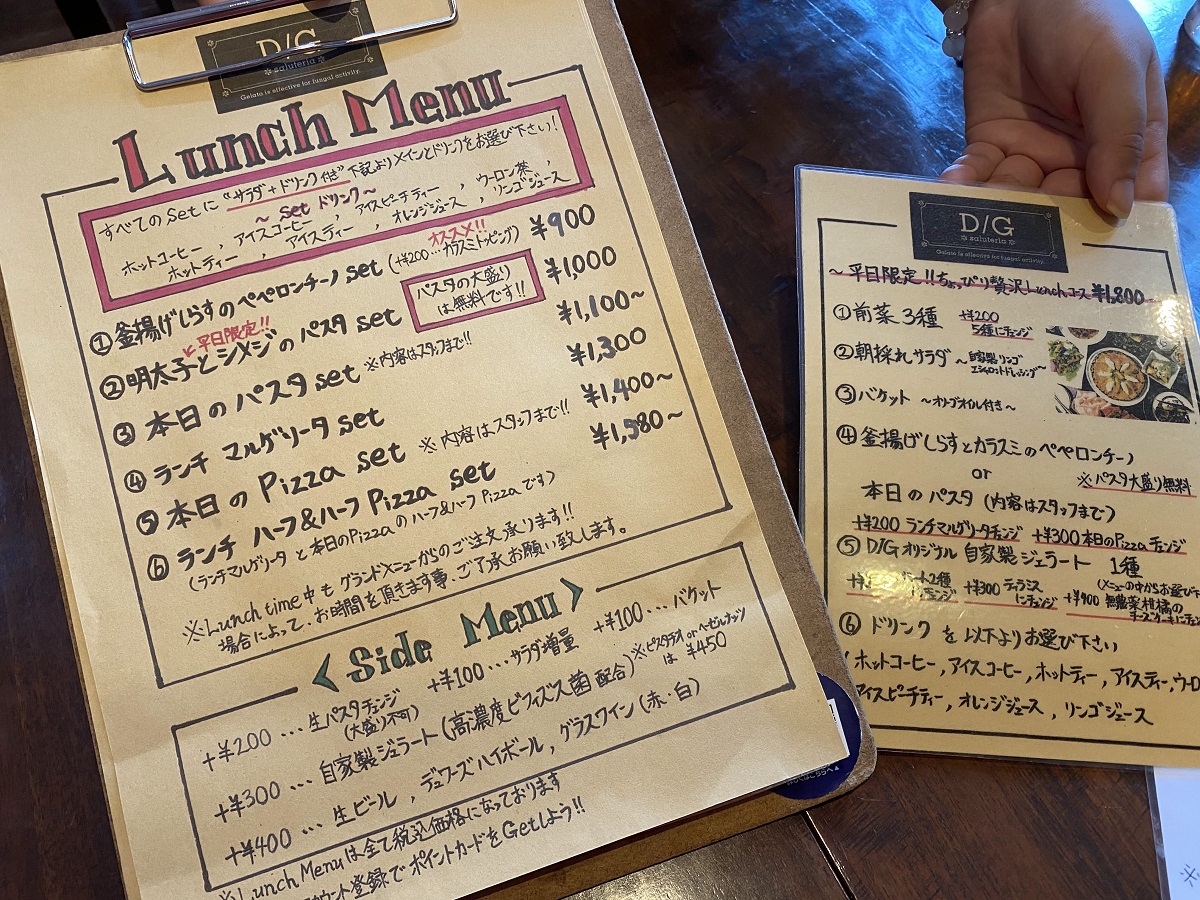 D/G
saluteria
Gelato is effective for fungal activity.
Lunch Menu
すべてのSetに"サラダ+ドリンク付き"下記よりメインとドリンクをお選び下さい!
~ Set ドリンク~
ホットコーヒー , アイスコーヒー , アイスピーチティー , ウーロン茶 ,
ホットティー , アイスティー , オレンジジュース , リンゴジュース
オススメ!!
①釜揚げしらすのペペロンチーノ set (+¥200…カラスミトッピング) ¥900
平日限定!!
②明太子とシメジのパスタ set ¥1,000
パスタの大盛り
は無料です!!
③本日のパスタ set ※内容はスタッフまで!! ¥1,100~
④ランチ マルゲリータ set ¥1,300
⑤本日の Pizza set ※内容はスタッフまで!! ¥1,400~
⑥ランチ ハーフ&ハーフ Pizza set ¥1,580~
(ランチマルゲリータと本日のPizzaのハーフ&ハーフPizzaです)
※Lunch time中もグランドメニューからのご注文承ります!!
場合によって、お時間を頂きます事、ご了承お願い致します。
<Side Menu>
+¥200…生パスタチェンジ +¥100…サラダ増量 +¥100…バケット
(大盛り不可)
+¥300…自家製ジェラート(高濃度ビフィズス菌配合) ※ピスタチオorヘーゼルナッツ
は ¥450
+¥400…生ビール , デュワーズハイボール , グラスワイン(赤・白)
※Lunch Menuは全て税込価格になっております
カウント登録でポイントカードをGetしよう!!
D/G
saluteria
Gelato is effective for fungal activity.
~平日限定!!ちょっぴり贅沢Lunchコース ¥1,800~
①前菜3種 +¥200
5種にチェンジ
②朝採れサラダ ~自家製リンゴ
エシャロットドレッシング~
③バケット ~オリーブオイル付き~
④釜揚げしらすとカラスミのペペロンチーノ
or ※パスタ大盛り無料
本日のパスタ (内容はスタッフまで)
+¥200 ランチマルゲリータチェンジ +¥300本日のPizzaチェンジ
⑤D/Gオリジナル 自家製ジェラート 1種
(メニューの中からお選び下
ート2種 +¥300 ティラミス +¥400 無農薬柑橘の
チェンジ にチェンジ チーズケーキにチェン
⑥ドリンク を以下よりお選び下さい
(ホットコーヒー, アイスコーヒー, ホットティー, アイスティー, ウーロ
アイスピーチティー, オレンジジュース, リンゴジュース